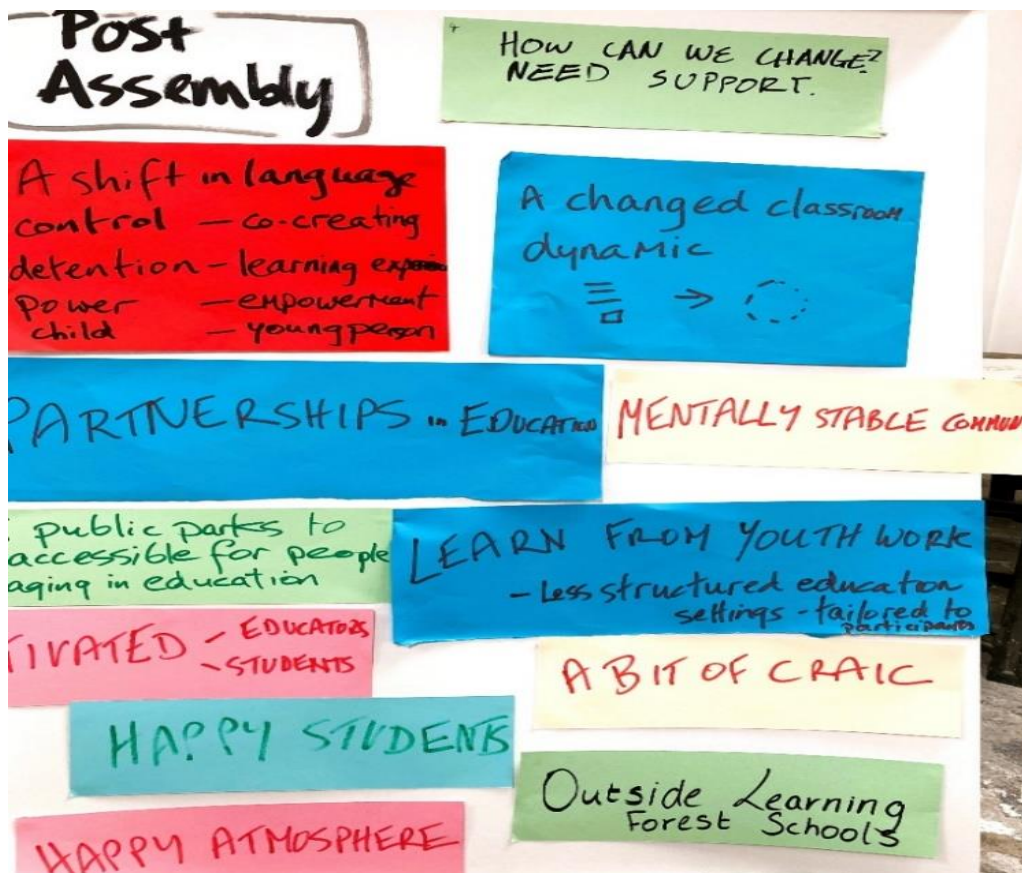 Post
Assembly
HOW CAN WE CHANGE?
NEED SUPPORT.
A shift in language
control – co-creating
detention – learning
power – empowerment
child – young person
A changed classroom
dynamic
PARTNERSHIPS in EDUCATION
MENTALLY STABLE COMMUN
public parks to
accessible for people
aging in education
LEARN FROM YOUTH WORK
– Less structured education
settings – tailored to
participants
TIVATED – EDUCATORS
– STUDENTS
A BIT OF CRAIC
HAPPY STUDENTS
Outside Learning
Forest Schools
HAPPY ATMOSPHERE